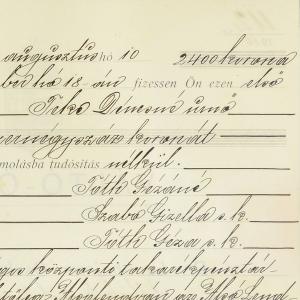 augusztus hó 10 2400 korona
ber hó 18-án fizessen Ön ezen első
Teke Dénesné urnő
ezernégyszáz koronát
molásba tudósítás nélkül.
Tóth Gézáné
Szabó Gizella s. k.
Tóth Géza s. k.
központi takarékpénztár